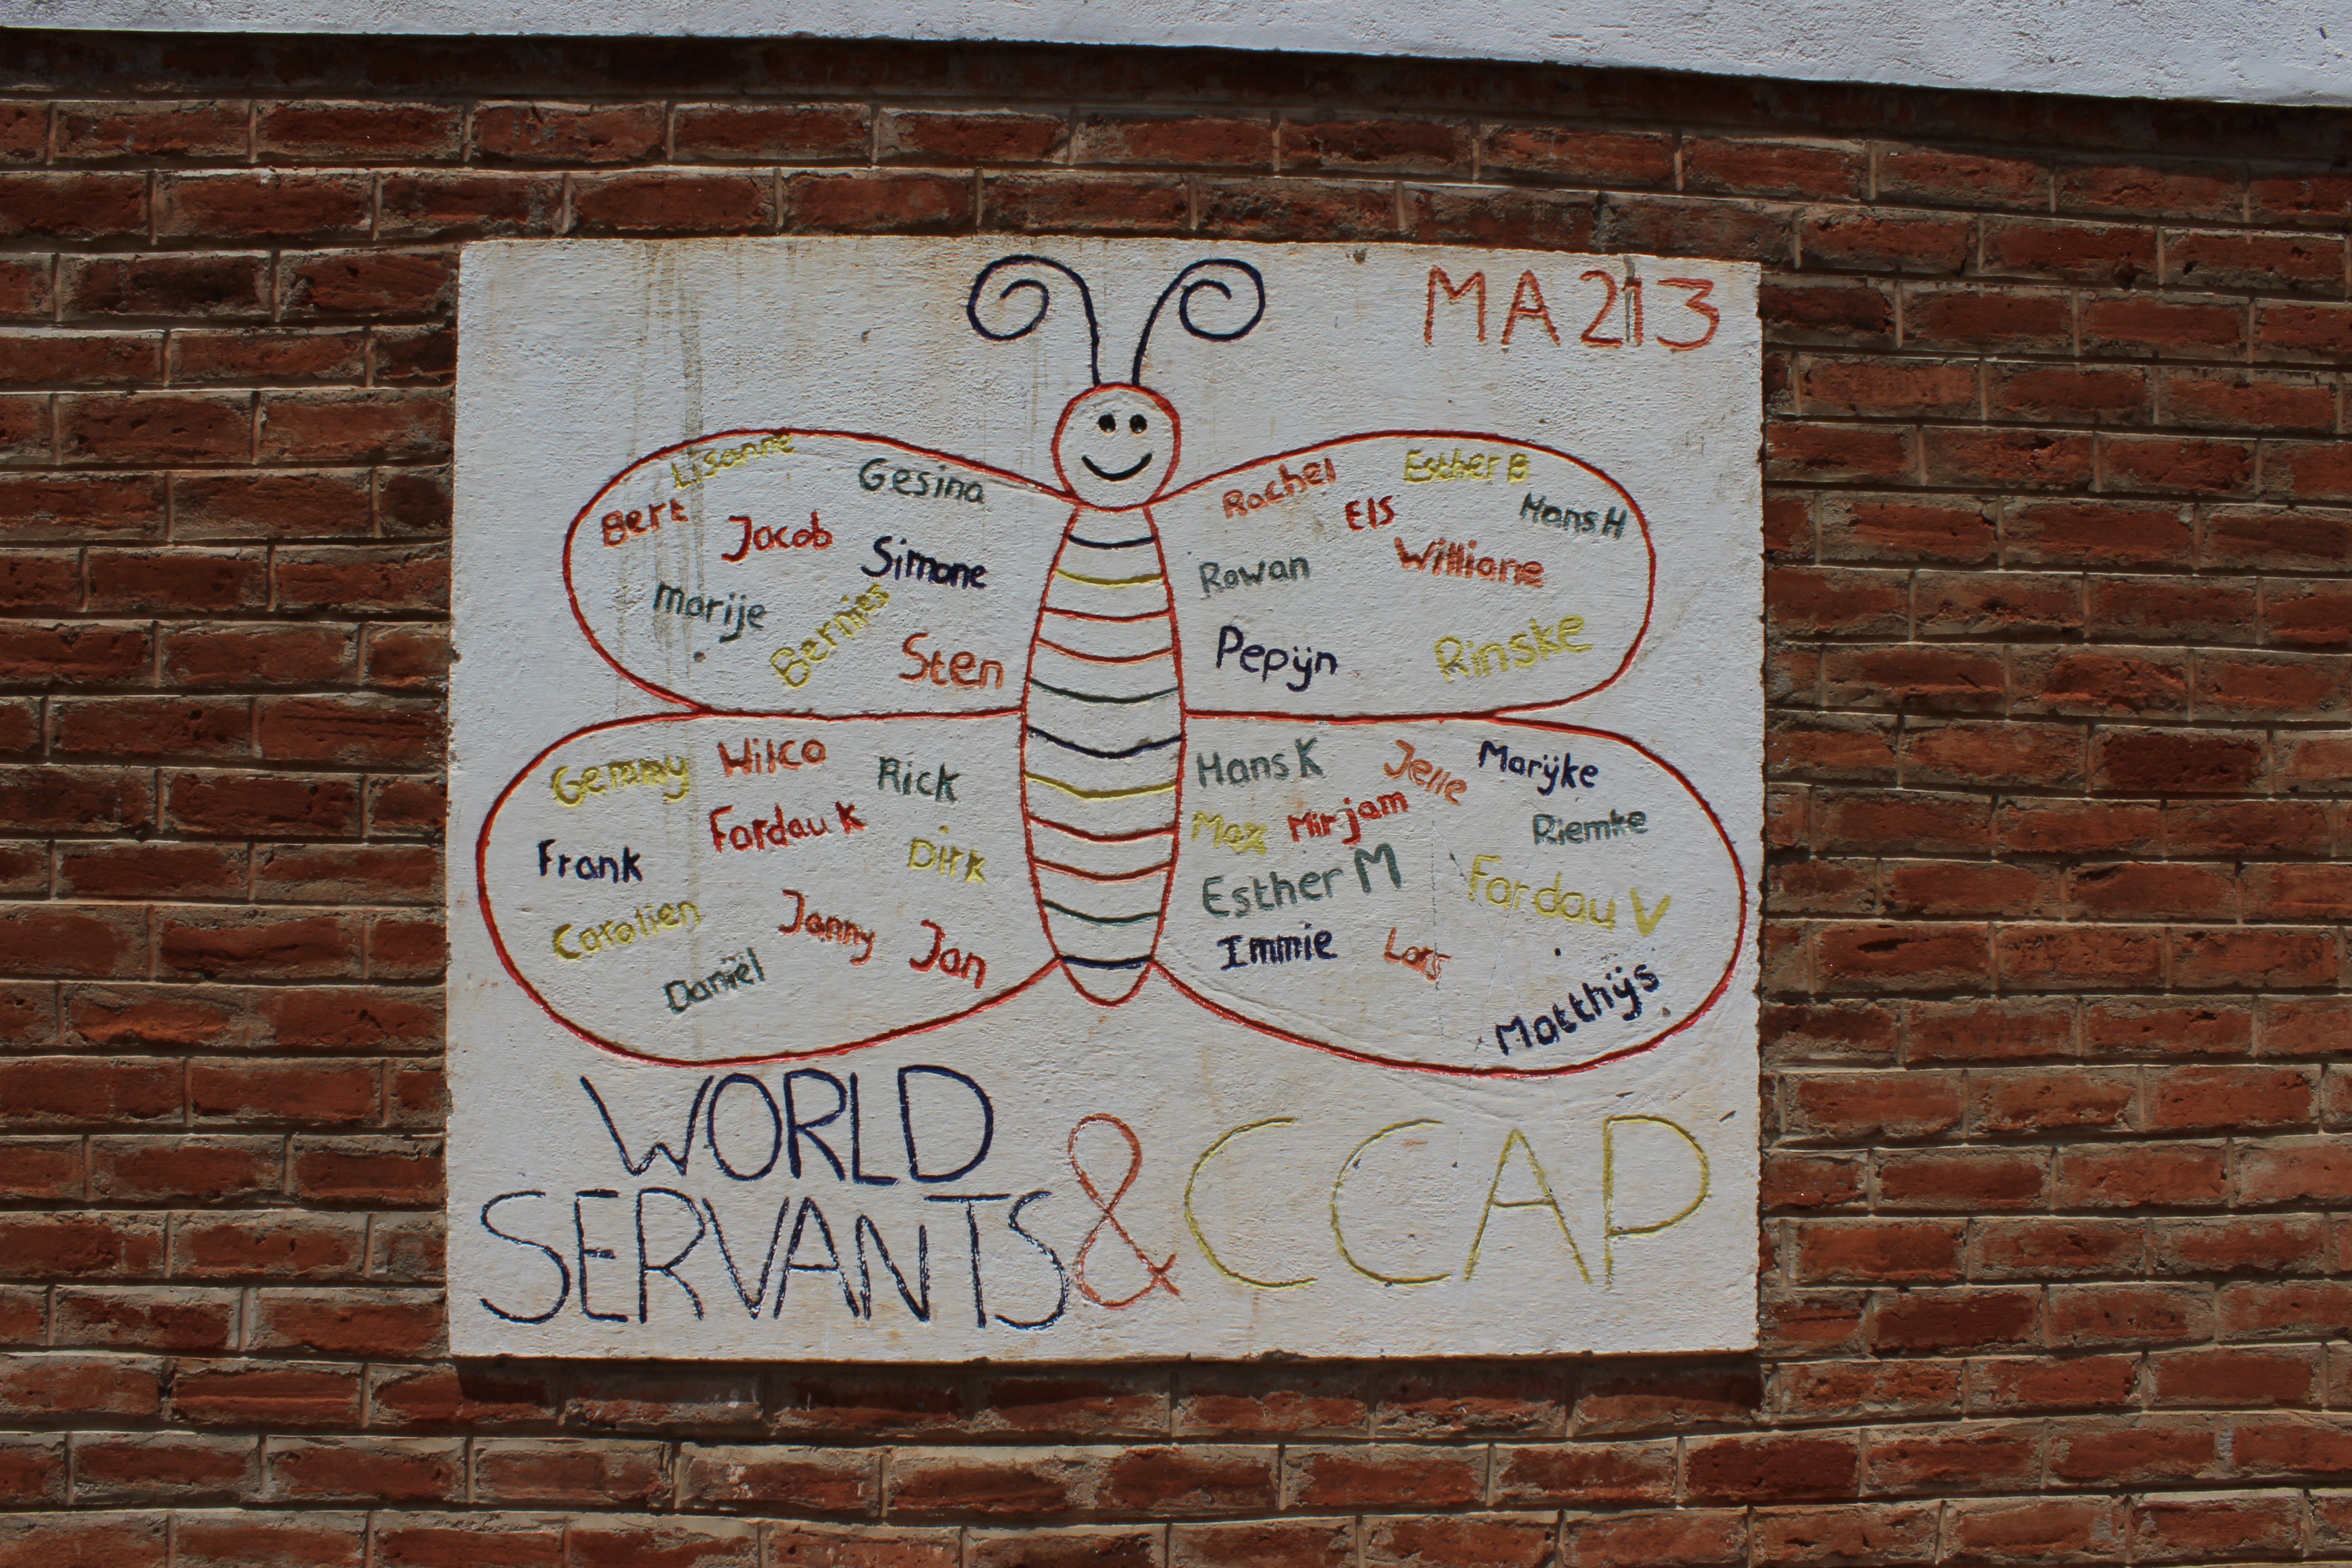 MA213
Lisanne
Gesina
Bert
Jacob
Simone
Marije
Bernies
Sten
Rachel
Esther B
Els
Hans H
Rowan
Williane
Pepijn
Rinske
Gemmy
Wilco
Rick
Fardau K
Frank
Dirk
Carolien
Janny
Jan
Daniël
Hans K
Jelle
Marijke
Max
Mirjam
Riemke
Esther M
Fardau V
Immie
Lars
Matthijs
WORLD
SERVANTS & CCAP